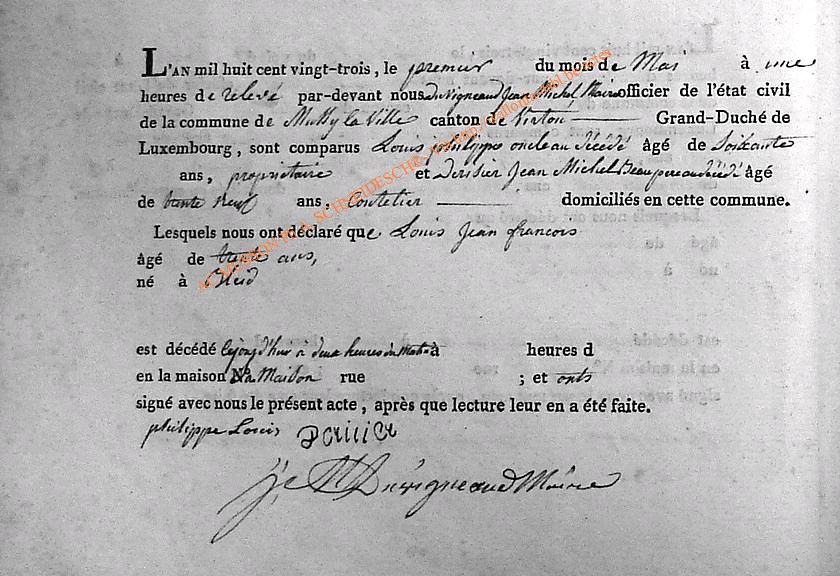 L'AN mil huit cent vingt-trois, le premier du mois de Mai à une
heures de relevé par-devant nous Duvigneaud Jean Michel Maire officier de l'état civil
de la commune de Mussy la Ville canton de Virton Grand-Duché de
Luxembourg, sont comparus Louis philippe oncle au décédé âgé de Soixante
ans, propriétaire et Jean Michel Beaupere au décédé âgé
de trente neuf ans, Coutelier domiciliés en cette commune.
Lesquels nous ont déclaré que Louis Jean francois
âgé de trente ans,
né à Bleid
est décédé cejourd'hui à deux heures du Matin à heures d
en la maison Sa Maison rue ; et onts
signé avec nous le présent acte, après que lecture leur en a été faite.
philippe Louis
Duvigneaud Maire